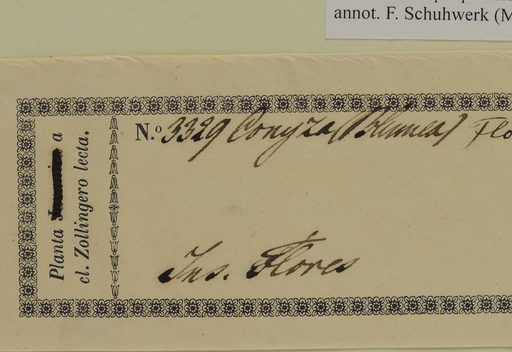 annot. F. Schuhwerk (M
Planta a
cl. Zollingero lecta.
N.º 3329 Conyza (Blumea) Flo
Ins. Flores